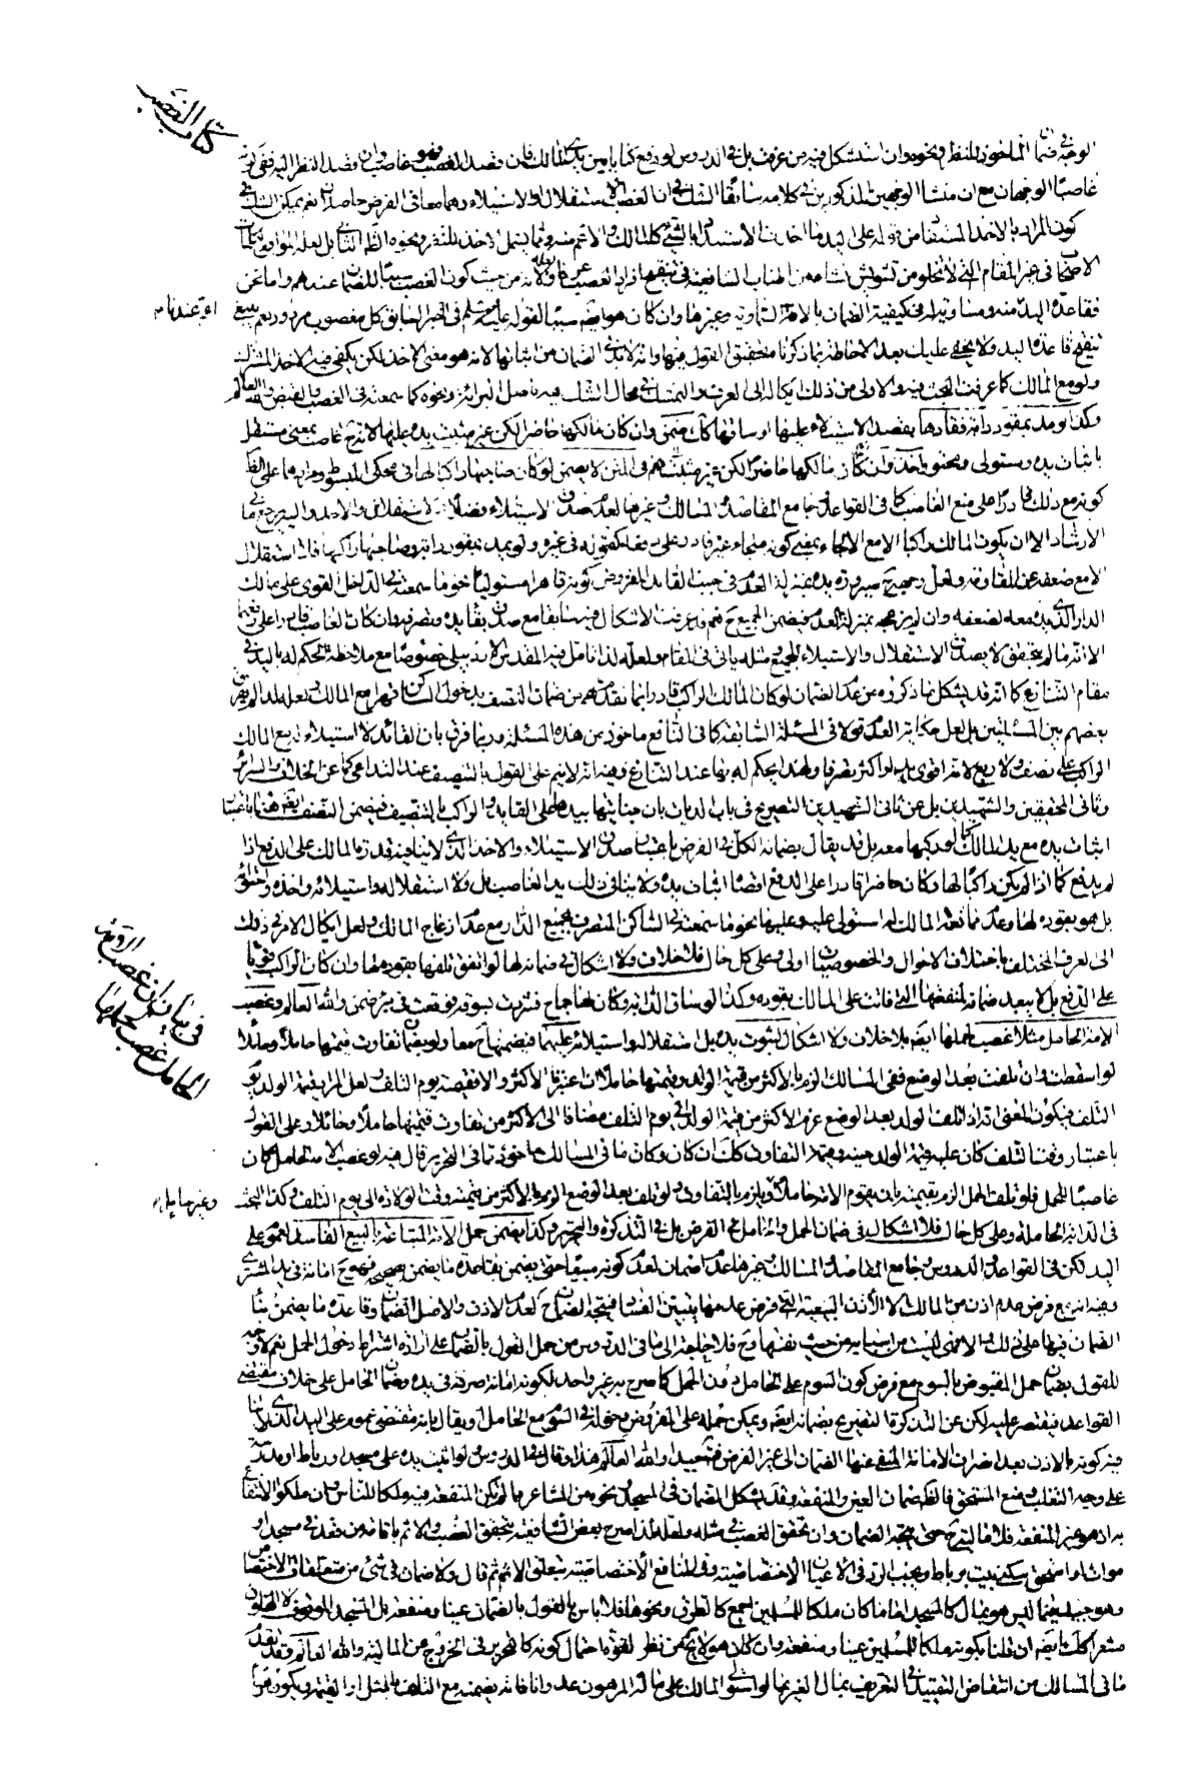 كتاب الغصب
الوجه في ضمان المأخوذ للنظر ونحوه وان استشكل فيه من عرفت بل في الدروس لو رفع كتابا بين يدي المالك فان قصد الغصب فهو غاصب وان قصد النظر اليه ففي كونه
غاصبا الوجهان مع ان منشأ الوجهين المذكورين في كلامه سابقا الشك في ان الغصب الاستقلال او الاستيلاء وهما معا في الفرض حاصلان نعم يمكن الشك في
كون المراد بالاخذ المستفاد من قوله على اليد ما اخذت الاستبداد بالشيء كالمالك او الاعم منه وما يشمل الاخذ للنظر ونحوه
الاصحاب في غير المقام لا تخلو من تشويش نشأ من اطناب الشافعية في تنقيح افراد الغصب من حيث كون الغصب سببا للضمان عندهم واما نحن
فقاعدة اليد عندنا اعم منه ومساوية له في كيفية الضمان بالآفة السماوية وغيرها وان كان هو ايضا سببا لقوله عليه السلام في الخبر السابق كل مغصوب مردود نعم ينبغي
تنقيح قاعدة اليد ولا يخفى عليك بعد الاحاطة بما ذكرنا تحقيق القول فيها وانه لا بد في الضمان من اثباتها لانه هو معنى الاخذ لكن يكفي فيه الاخذ
ولو مع المالك كما عرفت البحث فيه والاولى من ذلك ايكاله الى العرف والتمسك في محال الشك فيه باصل البراءة ونحوه كما سمعته في الغصب والقبض والله العالم
وكذا لو مد بمقود دابة فقادها بقصد الاستيلاء عليها او ساقها كك ضمن وان كان مالكها حاضرا لكن غير مثبت يده عليها لانه ح غاصب بمعنى مستقل
باثبات يده ومستولي ونحو واخذ وان كان مالكها حاضرا لكن غير مثبت نعم في المتن لا يضمن لو كان صاحبها راكبا لها في محكي المبسوط
كونه مع ذلك قادرا على منع الغاصب كما في القواعد وجامع المقاصد والمسالك وغيرها لعدم صدق الاستيلاء فضلا عن الاستقلال والاخذ واليه يرجع ما في
الارشاد الا ان يكون المالك راكبا الا مع الالجاء بمعنى كونه ملجأ غير قادر على دفعه كقوله في غيره ولو مد بمقود دابة وصاحبها راكبها فلا استقلال
الا مع ضعفه عن المقاومة ولعل وجهه ح صيرورة يده بمنزلة العدم في جنب القائد المفروض كونه قاهرا مستوليا نحو ما سمعته في الداخل القوي على مالك
الدار الذي يده معه لضعفه وان لم يزعجه بمنزلة العدم فيضمن الجميع ح نعم قد عرفت الاشكال فيه سابقا مع صدق بقاء يده وتصرفه وان كان الغاصب قادرا على رفعها
الا انه ما لم يتحقق لا يصدق الاستقلال والاستيلاء للجميع ومثله يأتي في المقام ولعله لذا تأمل فيه المقدس الاردبيلي خصوصا مع ملاحظة الحكم له باليد في
مقام التنازع كما انه قد يشكل ما ذكروه من عدم الضمان لو كان المالك الراكب قادرا بما تقدم منهم من ضمان النصف بدخول الساكن قهرا مع المالك ولعله لذا لم يفرق
بعضهم بين المسألتين بل لعل حكاية العدم قولا في المسألة السابقة كما في النافع مأخوذ من هذه المسألة وربما فرق بان القائد لا استيلاء له مع المالك
الراكب على نصف ولا ربع لانه اقوى يدا واكثر تصرفا ولهذا يحكم له بها عند التنازع وفيه انه لا يتم على القول بالتنصيف عند التداعي كما عن الخلاف والسرائر
وثاني المحققين والشهيدين بل عن ثاني الشهيدين التصريح في باب الديات بان جنايتها بيدها على القائد والراكب بالتنصيف فيضمن النصف
اثبات يده مع يد المالك كما لو ركبها معه بل قد يقال بضمانه الكل في الفرض باعتبار صدق الاستيلاء والاخذ الذي لا ينافيه قدرة المالك على الدفع اذا
لم يدفع كما اذا لم يكن راكبا لها وكان حاضرا قادرا على الدفع
بل هو بقوده لها وعدم ممانعة المالك له استولى عليه وعليها نحو ما سمعته في الساكن المتصرف بجميع الدار مع عدم ازعاج المالك ولعل ايكال الامر في ذلك
الى العرف المختلف باختلاف الاحوال والخصوصيات اولى وعلى كل حال فلا خلاف ولا اشكال في ضمانه لها لو اتفق تلفها بقوده لها وان كان الراكب قويا
على الدفع بل لا يبعد ضمانه لمنفعتها التي فاتت على المالك بقوده وكذا لو ساق الدابة وكان لها جماح فشردت بسوقه فوقعت في بئر ضمن والله العالم وغصب
الامة الحامل مثلا غصب لحملها ايضا بلا خلاف ولا اشكال لثبوت يده بل استقلاله واستيلائه عليهما فيضمنهما ح معا ولو بضمان تفاوت قيمتها حاملا وحائلا
لو اسقطت وان تلفت بعد الوضع ففي المسالك لزمه الاكثر من قيمة الولد وقيمتها حاملا ان اعتبرنا الاكثر والا فقيمته يوم التلف ولعل المراد قيمة الولد يوم
التلف فيكون المعنى انه اذا تلف الولد بعد الوضع غرم الاكثر من قيمة الولد الى يوم التلف مضافا الى الاكثر من تفاوت قيمتها حاملا وحائلا وعلى القول
باعتبار وقت التلف كان عليه قيمة الولد حينه ومقدار التفاوت كك ان كان وكان ما في المسالك مأخوذ مما في التحرير قال فيه لو غصب الامة الحامل كان
غاصبا للحمل فلو تلف الحمل الزم بقيمته بان يقوم الامة حاملا وغير حامل ويلزم بالتفاوت ولو تلف بعد الوضع الزم بالاكثر من قيمته وقت الولادة الى يوم التلف وكذا البحث
في الدابة الحاملة وعلى كل حال فلا اشكال في ضمان الحمل وان تأمل في الفرض بل في التذكرة والتحرير وكذا يضمن حمل الامة المبتاعة بالبيع الفاسد لعموم على
اليد لكن في القواعد والدروس وجامع المقاصد والمسالك وغيرها عدم الضمان لعدم كونه مبيعا حتى يضمن بقاعدة ما يضمن بصحيحه فهو ح امانة في يد المشتري
وفيه انه مع فرض عدم اذن من المالك الا الاذن البيعية التي فرض عدمها بتبين الفساد فيتجه الضمان ح لعدم الاذن والاصل الضمان وقاعدة ما يضمن
الضمان فيها على ذلك والا فهي ليست من اسبابه من حيث نفسها وح فلا حاجة الى ما في الدروس من حمل القول بالضمان على ارادة اشتراط دخول الحمل نعم لا وجه
للقول بضمان حمل المقبوض بالسوم مع فرض كون السوم على الحامل دون الحمل كما صرح به غير واحد لكونه امانة صرفة في يده وضمان الحامل على خلاف مقتضى
القواعد فيقتصر عليه لكن عن التذكرة التصريح بضمانه ايضا ويمكن حمله على المفروض دخوله في السوم مع الحامل او يقال بانه مقتضى عموم على اليد
فيه كونه بالاذن بعد انصراف الامانة المنفي عنها الضمان الى غير الفرض فتأمل جيدا والله العالم هذا وقال في الدروس لو اثبت يده على مسجد او رباط او مدرسة
على وجه التغلب ومنع المستحق فالظاهر ضمان العين والمنفعة وقد يشكل الضمان في المسجد ونحوه من المشاعر بما لم تكن المنفعة فيه ملكا للناس وان ملكوا الانتفاع
به اذ هو غير المنفعة فلا مالية ح حتى يتجه الضمان وان تحقق الغصب في مثله ولعله لذا صرح بعض الشافعية بتحقق الغصب والاثم باقامة من قعد في مسجد او
موات او استحق سكنى بيت برباط ويجب الرد في الاعيان الاختصاصية وفي المنافع الاختصاصية يتعلق الاثم ثم قال ولا ضمان في شيء من متعلقات الاختصاص
وهو جيد فيما ليس هو بمال كالمسجد اما ما كان ملكا للمسلمين اجمع كالطرق ونحوها فلا باس بالقول بالضمان عينا ومنفعة بل المسجد الموقوف
مشعرا كك ايضا ان قلنا بكونه ملكا للمسلمين عينا ومنفعة وان كان هو لا يخلو من نظر لقوة احتمال كونه كالتحرير في الخروج من المالية والله العالم وقد تقدم
ما في المسالك من انتقاض التقييد في التعريف بمال الغير بما لو استولى المالك على ماله المرهون عدوانا فانه يضمنه مع التلف بالمثل او القيمة ويكون رهنا
في بيان ان غصب الامة
الحامل غصب لحملها